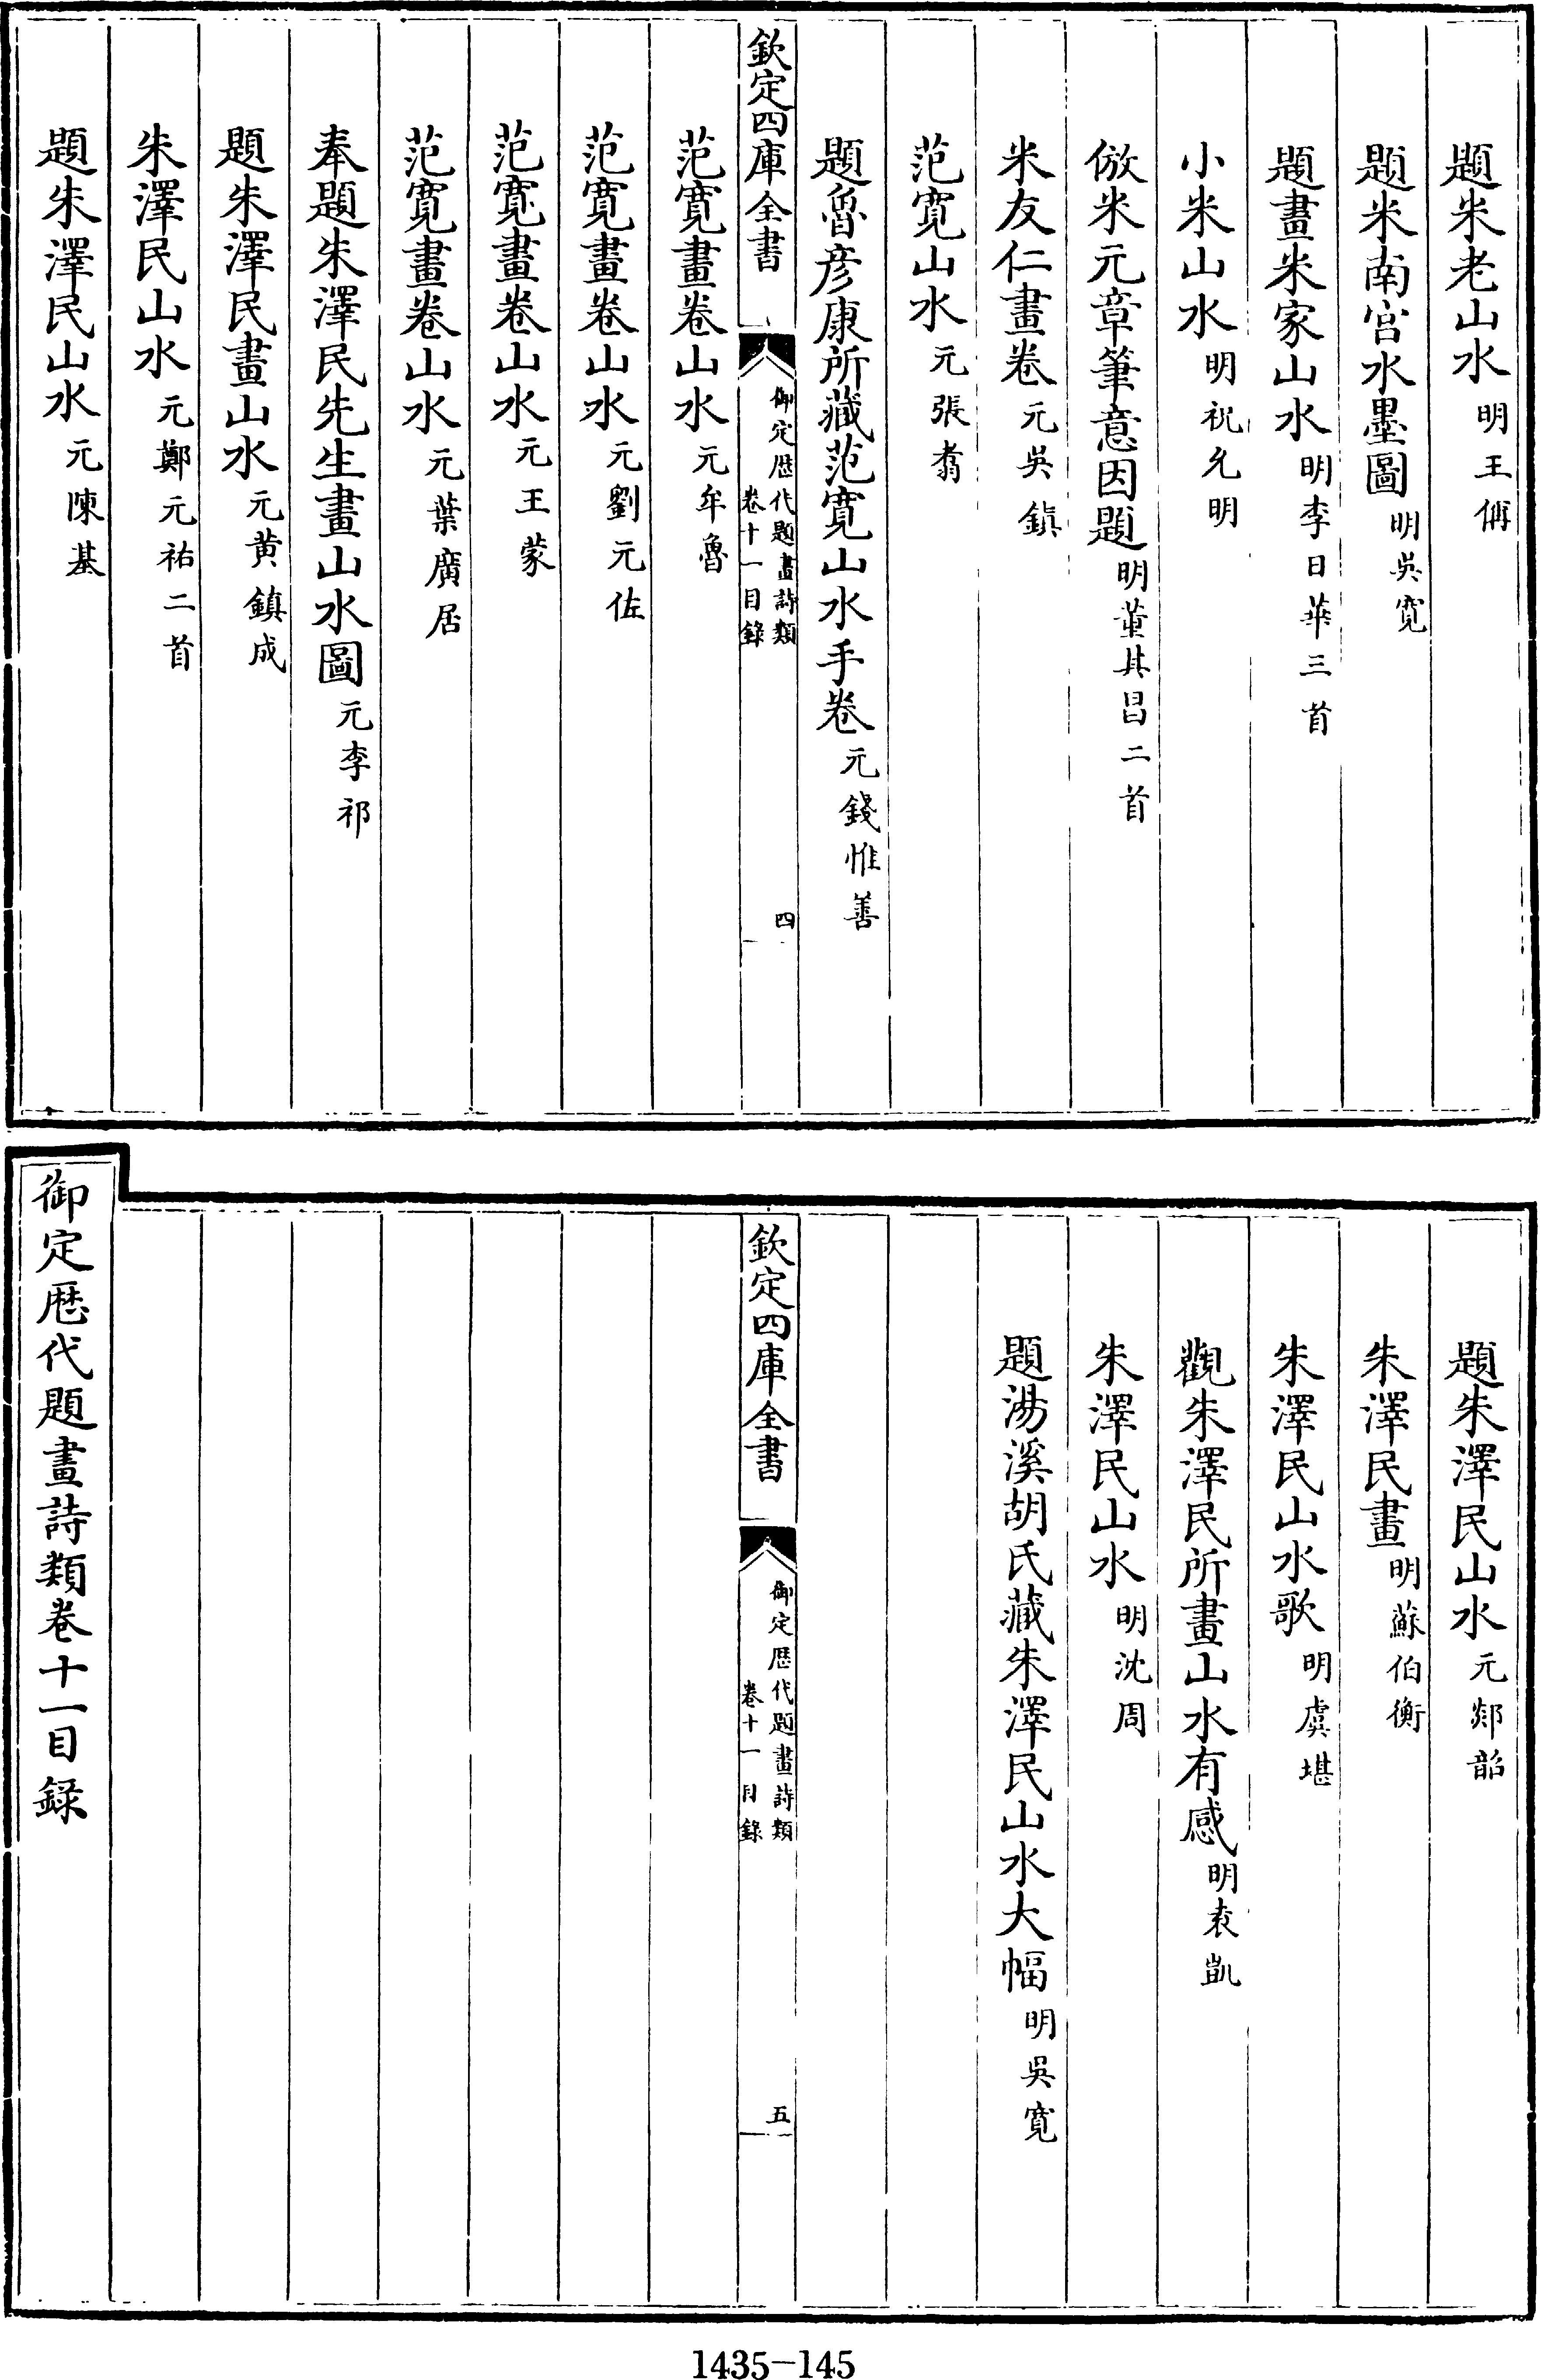 題米老山水 明王偁
題米南宫水墨圖 明吳寛
題畫米家山水 明李日華三首
小米山水 明祝允明
倣米元章筆意因題 明董其昌二首
米友仁畫卷 元吳鎮
范寛山水 元張翥
題魯彦康所藏范寛山水手卷 元錢惟善
欽定四庫全書
御定歴代題畫詩類
卷十一目錄
四
范寛畫卷山水 元牟魯
范寛畫卷山水 元劉元佐
范寛畫卷山水 元王蒙
范寛畫卷山水 元葉廣居
奉題朱澤民先生畫山水圖 元李祁
題朱澤民畫山水 元黄鎮成
朱澤民山水 元鄭元祐二首
題朱澤民山水 元陳基
題朱澤民山水 元郯韶
朱澤民畫 明蘇伯衡
朱澤民山水歌 明虞堪
觀朱澤民所畫山水有感 明袁凱
朱澤民山水 明沈周
題湯溪胡氏藏朱澤民山水大幅 明吳寛
欽定四庫全書
御定歴代題畫詩類
卷十一目錄
五
御定歴代題畫詩類卷十一目錄
1435-145